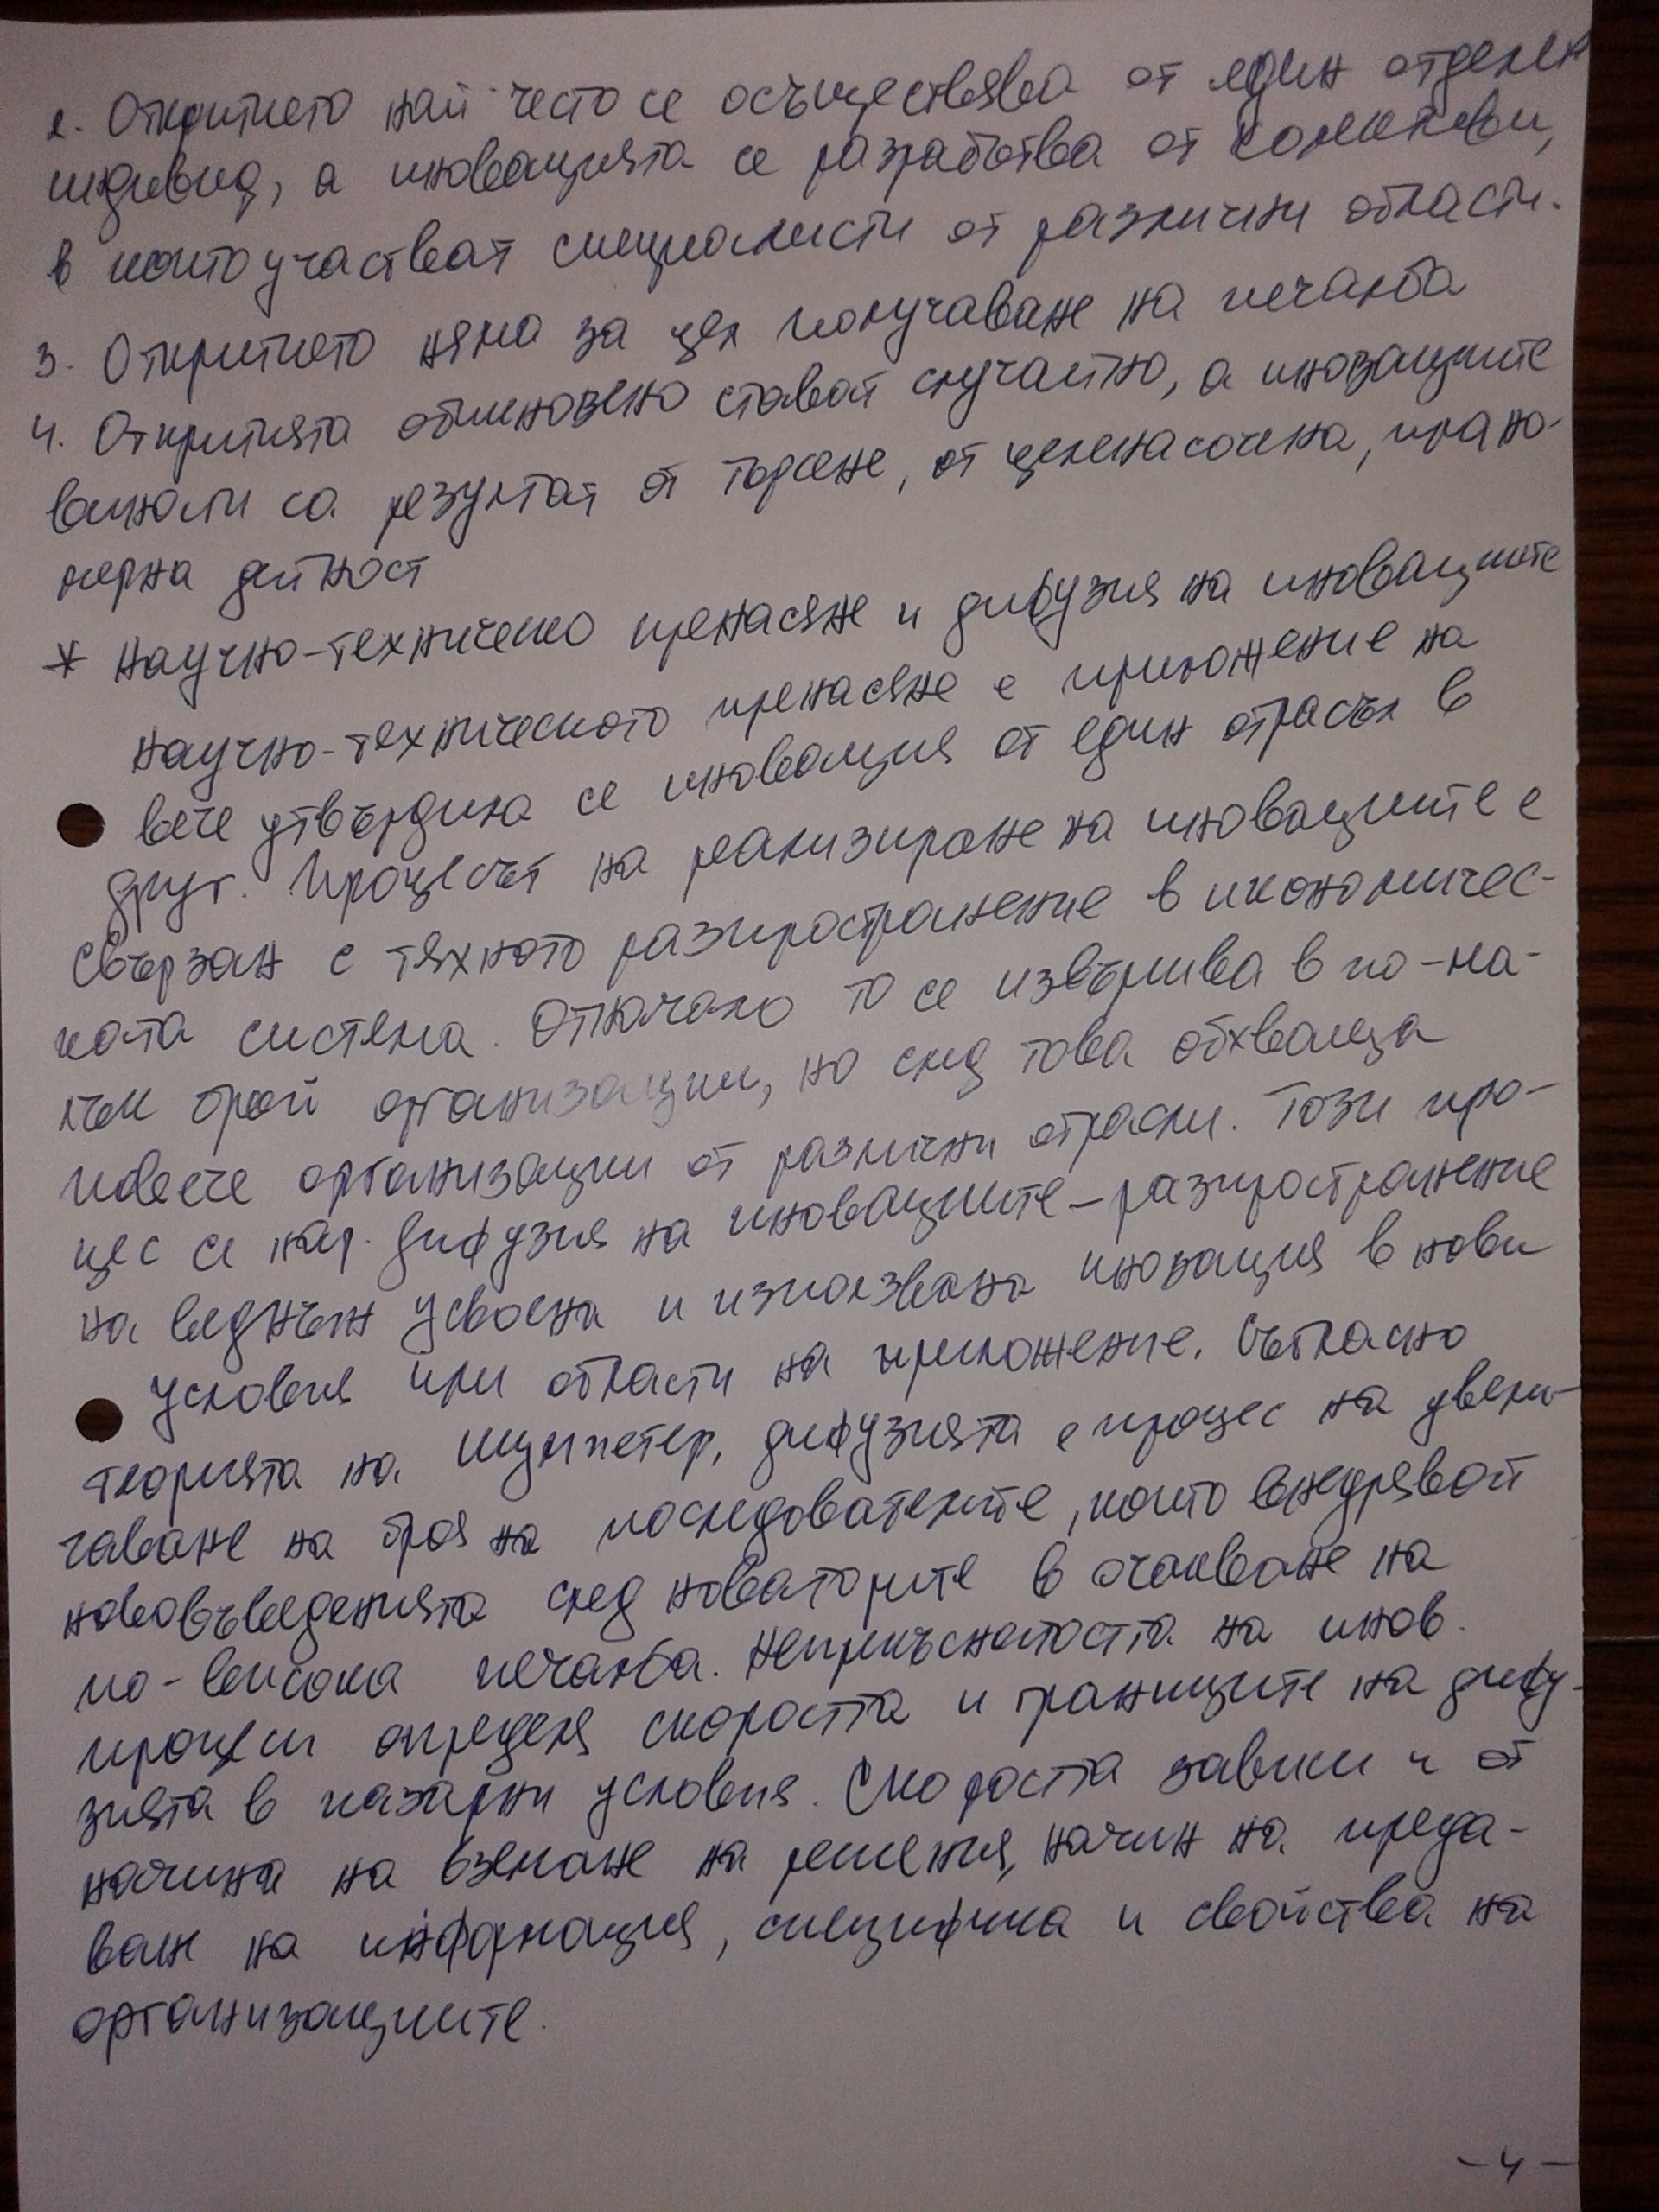 2. Откритието най-често се осъществява от един отделен
индивид, а иновацията се разработва от колективи,
в които участват специалисти от различни области.
3. Откритието няма за цел получаване на печалба
4. Откритията обикновено стават случайно, а иновациите
винаги са резултат от търсене, от целенасочена, плано-
мерна дейност
* Научно-техническо пренасяне и дифузия на иновациите
Научно-техническото пренасяне е приложение на
вече утвърдила се иновация от един отрасъл в
друг. Процесът на реализиране на иновациите е
свързан с тяхното разпространение в икономичес-
ката система. Отначало то се извършва в по-ма-
лък брой организации, но след това обхваща
повече организации от различни отрасли. Този про-
цес се нар. дифузия на иновациите – разпространение
на веднъж усвоена и използвана иновация в нови
условия или области на приложение. Съгласно
теорията на Шумпетер, дифузията е процес на увели-
чаване на броя на последователите, които внедряват
нововъведенията след новаторите в очакване на
по-висока печалба. Непрекъснатостта на инов.
процеси определя скоростта и границите на дифу-
зията в пазарни условия. Скоростта зависи и от
начина на вземане на решения, начин на преда-
ван на информация, специфика и свойства на
организациите.
- 4 -